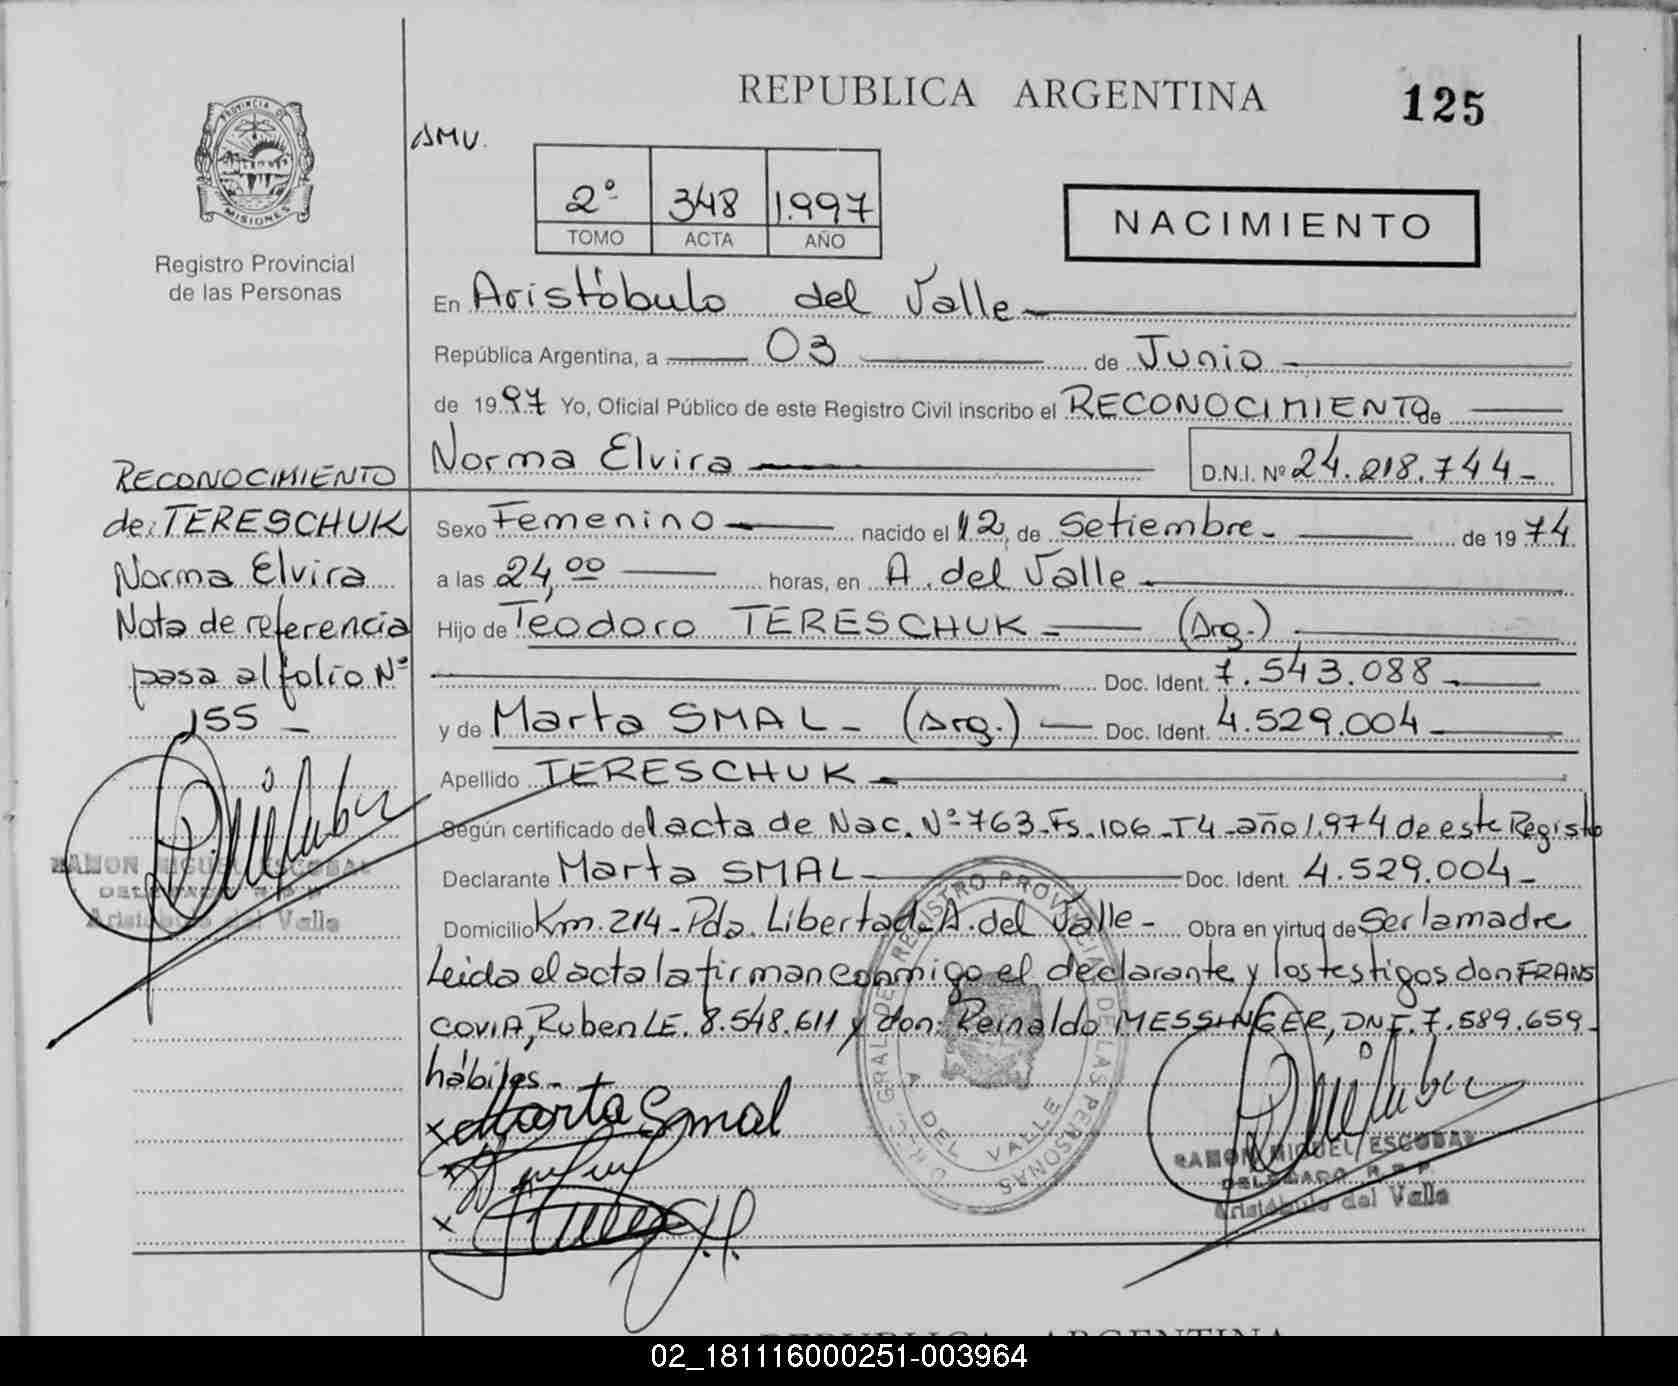 REPUBLICA ARGENTINA
125
PROVINCIA DE
MISIONES
Registro Provincial
de las Personas
AMV.
2º 348 1.997
TOMO ACTA AÑO
NACIMIENTO
En Aristóbulo del Valle
República Argentina, a 03 de Junio
de 1997 Yo, Oficial Público de este Registro Civil inscribo el RECONOCIMIENTO de
Norma Elvira D.N.I. Nº 24.218.744-
RECONOCIMIENTO
de: TERESCHUK
Norma Elvira
Nota de referencia
pasa al folio Nº
155 -
RAMON MIGUEL ESCOBAR
DELEGADO R.P.P.
Aristóbulo del Valle
Sexo Femenino nacido el 12 de Setiembre- de 1974
a las 24,00 horas, en A. del Valle
Hijo de Teodoro TERESCHUK - (Arg.)
Doc. Ident. 7.543.088 -
y de Marta SMAL - (Arg.) Doc. Ident. 4.529.004
Apellido TERESCHUK -
Según certificado del acta de Nac. Nº 763-Fs-106-T4-año 1.974 de este Registo
Declarante Marta SMAL Doc. Ident. 4.529.004-
Domicilio Km. 214-Pda. Libertad-A. del Valle- Obra en virtud de Ser la madre
Leida el acta la firman conmigo el declarante y los testigos don FRANS
COVIA, Ruben LE. 8.548.611 y don: Reinaldo MESSINGER, DNI. 7.589.659-
hábiles-
x Marta Smal
x
x
DIREC. GRAL. DE REGISTRO PROVINCIAL DE LAS PERSONAS
A DEL VALLE
RAMON MIGUEL ESCOBAR
DELEGADO R.P.P.
Aristóbulo del Valle
REPUBLICA ARGENTINA
02_181116000251-003964